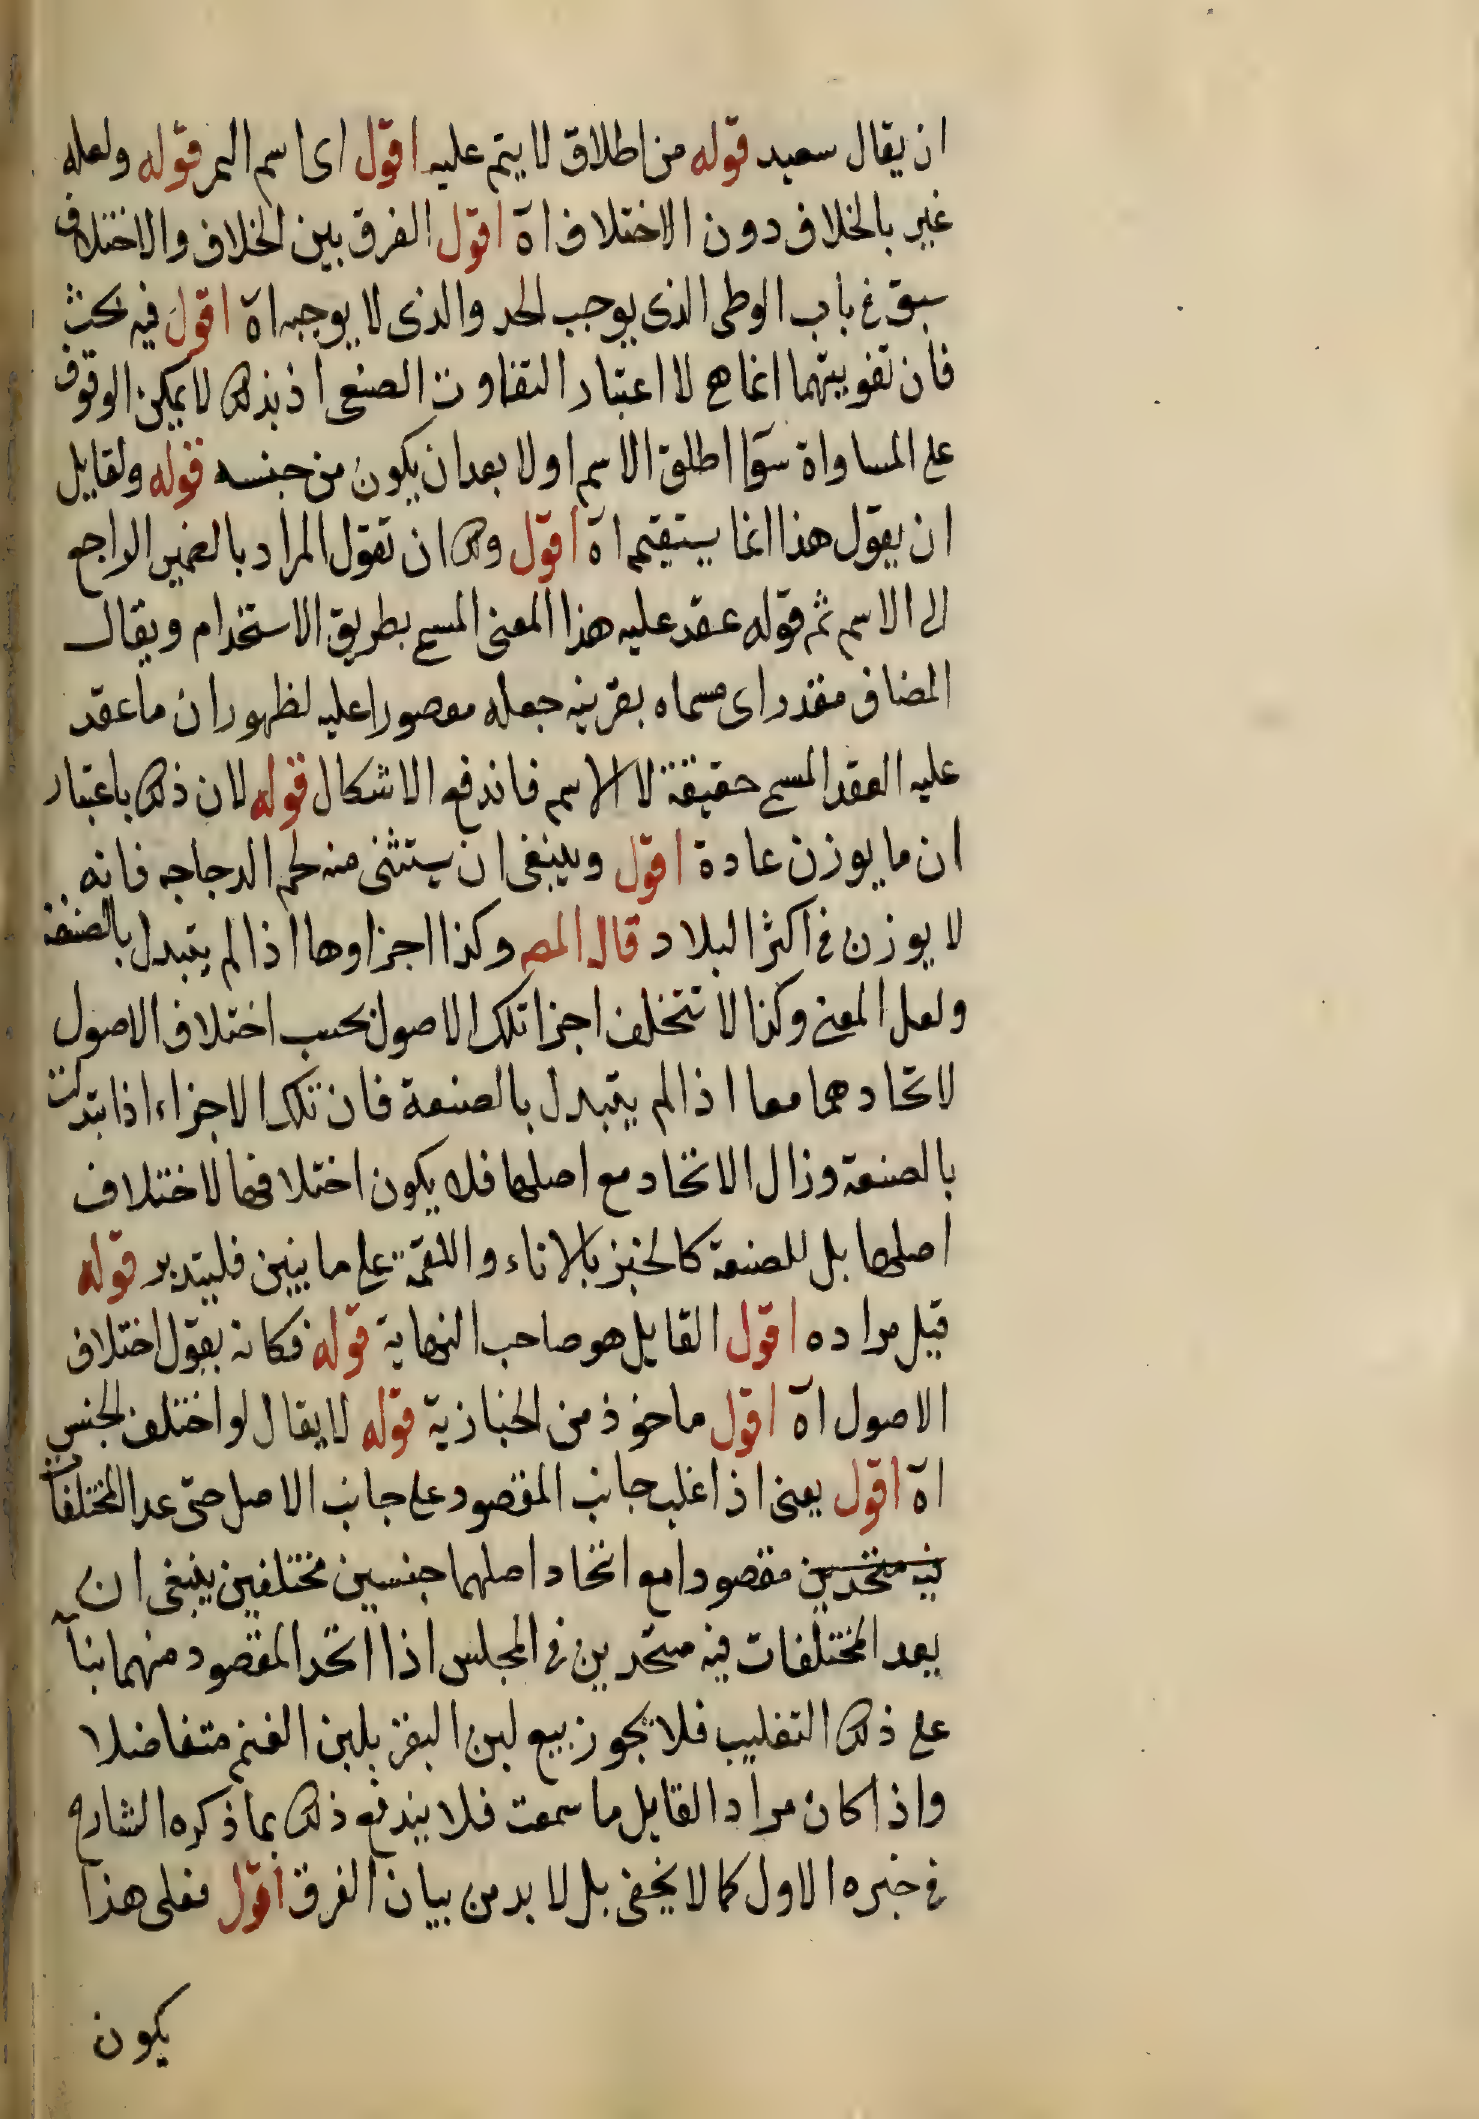 ان يقال سعيد قوله من اطلاق لا يتم عليه اقول اى اسم المر قوله ولعله
عبر بالخلاف دون الاختلاف اه اقول الفرق بين الخلاف والاختلاف
سبق فى باب الوطى الذى يوجب الحد والذى لا يوجبه اه اقول فيه بحث
فان تفويتهما انما هى لا اعتبار التفاوت الصنعى اذ بذلك لا يمكن الوقوف
على المساواة سوآ اطلق الاسم اولا بعد ان يكون من جنسه قوله ولقايل
ان يقول هذا انما يستقيم اه اقول ولك ان تقول المراد بالضمير الراجع
الى الاسم ثم قوله عقد عليه هذا المعنى المسمى بطريق الاستخدام ويقال
المضاف مقدر اى مسماه بقرينه جعله مقصورا عليه لظهور ان ما عقد
عليه العقد المسمى حقيقة لا الاسم فاندفع الاشكال قوله لان ذلك باعتبار
ان ما يوزن عادة اقول وينبغى ان يستثنى منه لحم الدجاجه فانه
لا يوزن فى اكثر البلاد قال المص وكذا اجزاوها اذا لم يتبدل بالصنعة
ولعل المعنى وكذا لا تتخلف اجزا تلك الاصول بحسب اختلاف الاصول
لاتحادهما معا اذا لم يتبدل بالصنعة فان تلك الاجزاء اذا تبدلت
بالصنعة وزال الاتحاد مع اصلها فلا يكون اختلافها لاختلاف
اصلها بل للصنعة كالخبز بالاناء واللقمة على ما يتبين فليتدبر قوله
قيل مراده اقول القايل هو صاحب النهاية قوله فكانه يقول اختلاف
الاصول اه اقول ماخوذ من الخبازية قوله لا يقال لو اختلف الجنس
اه اقول يعنى اذا غلب جانب المقصود على جانب الاصل حتى عد المختلفان
فيه متحدين مقصودا مع اتحاد اصلهما جنسين مختلفين ينبغى ان
يعد المختلفات فيه متحدين فى المجلس اذا اتحد المقصود منهما بنآ
على ذلك التغليب فلا يجوز بيع لبن البقر بلبن الغنم متفاضلا
واذا كان مراد القايل ما سمعت فلا يندفع ذلك بما ذكره الشارح
فى خبره الاول كما لا يخفى بل لا بد من بيان الفرق اقول فعلى هذا
يكون